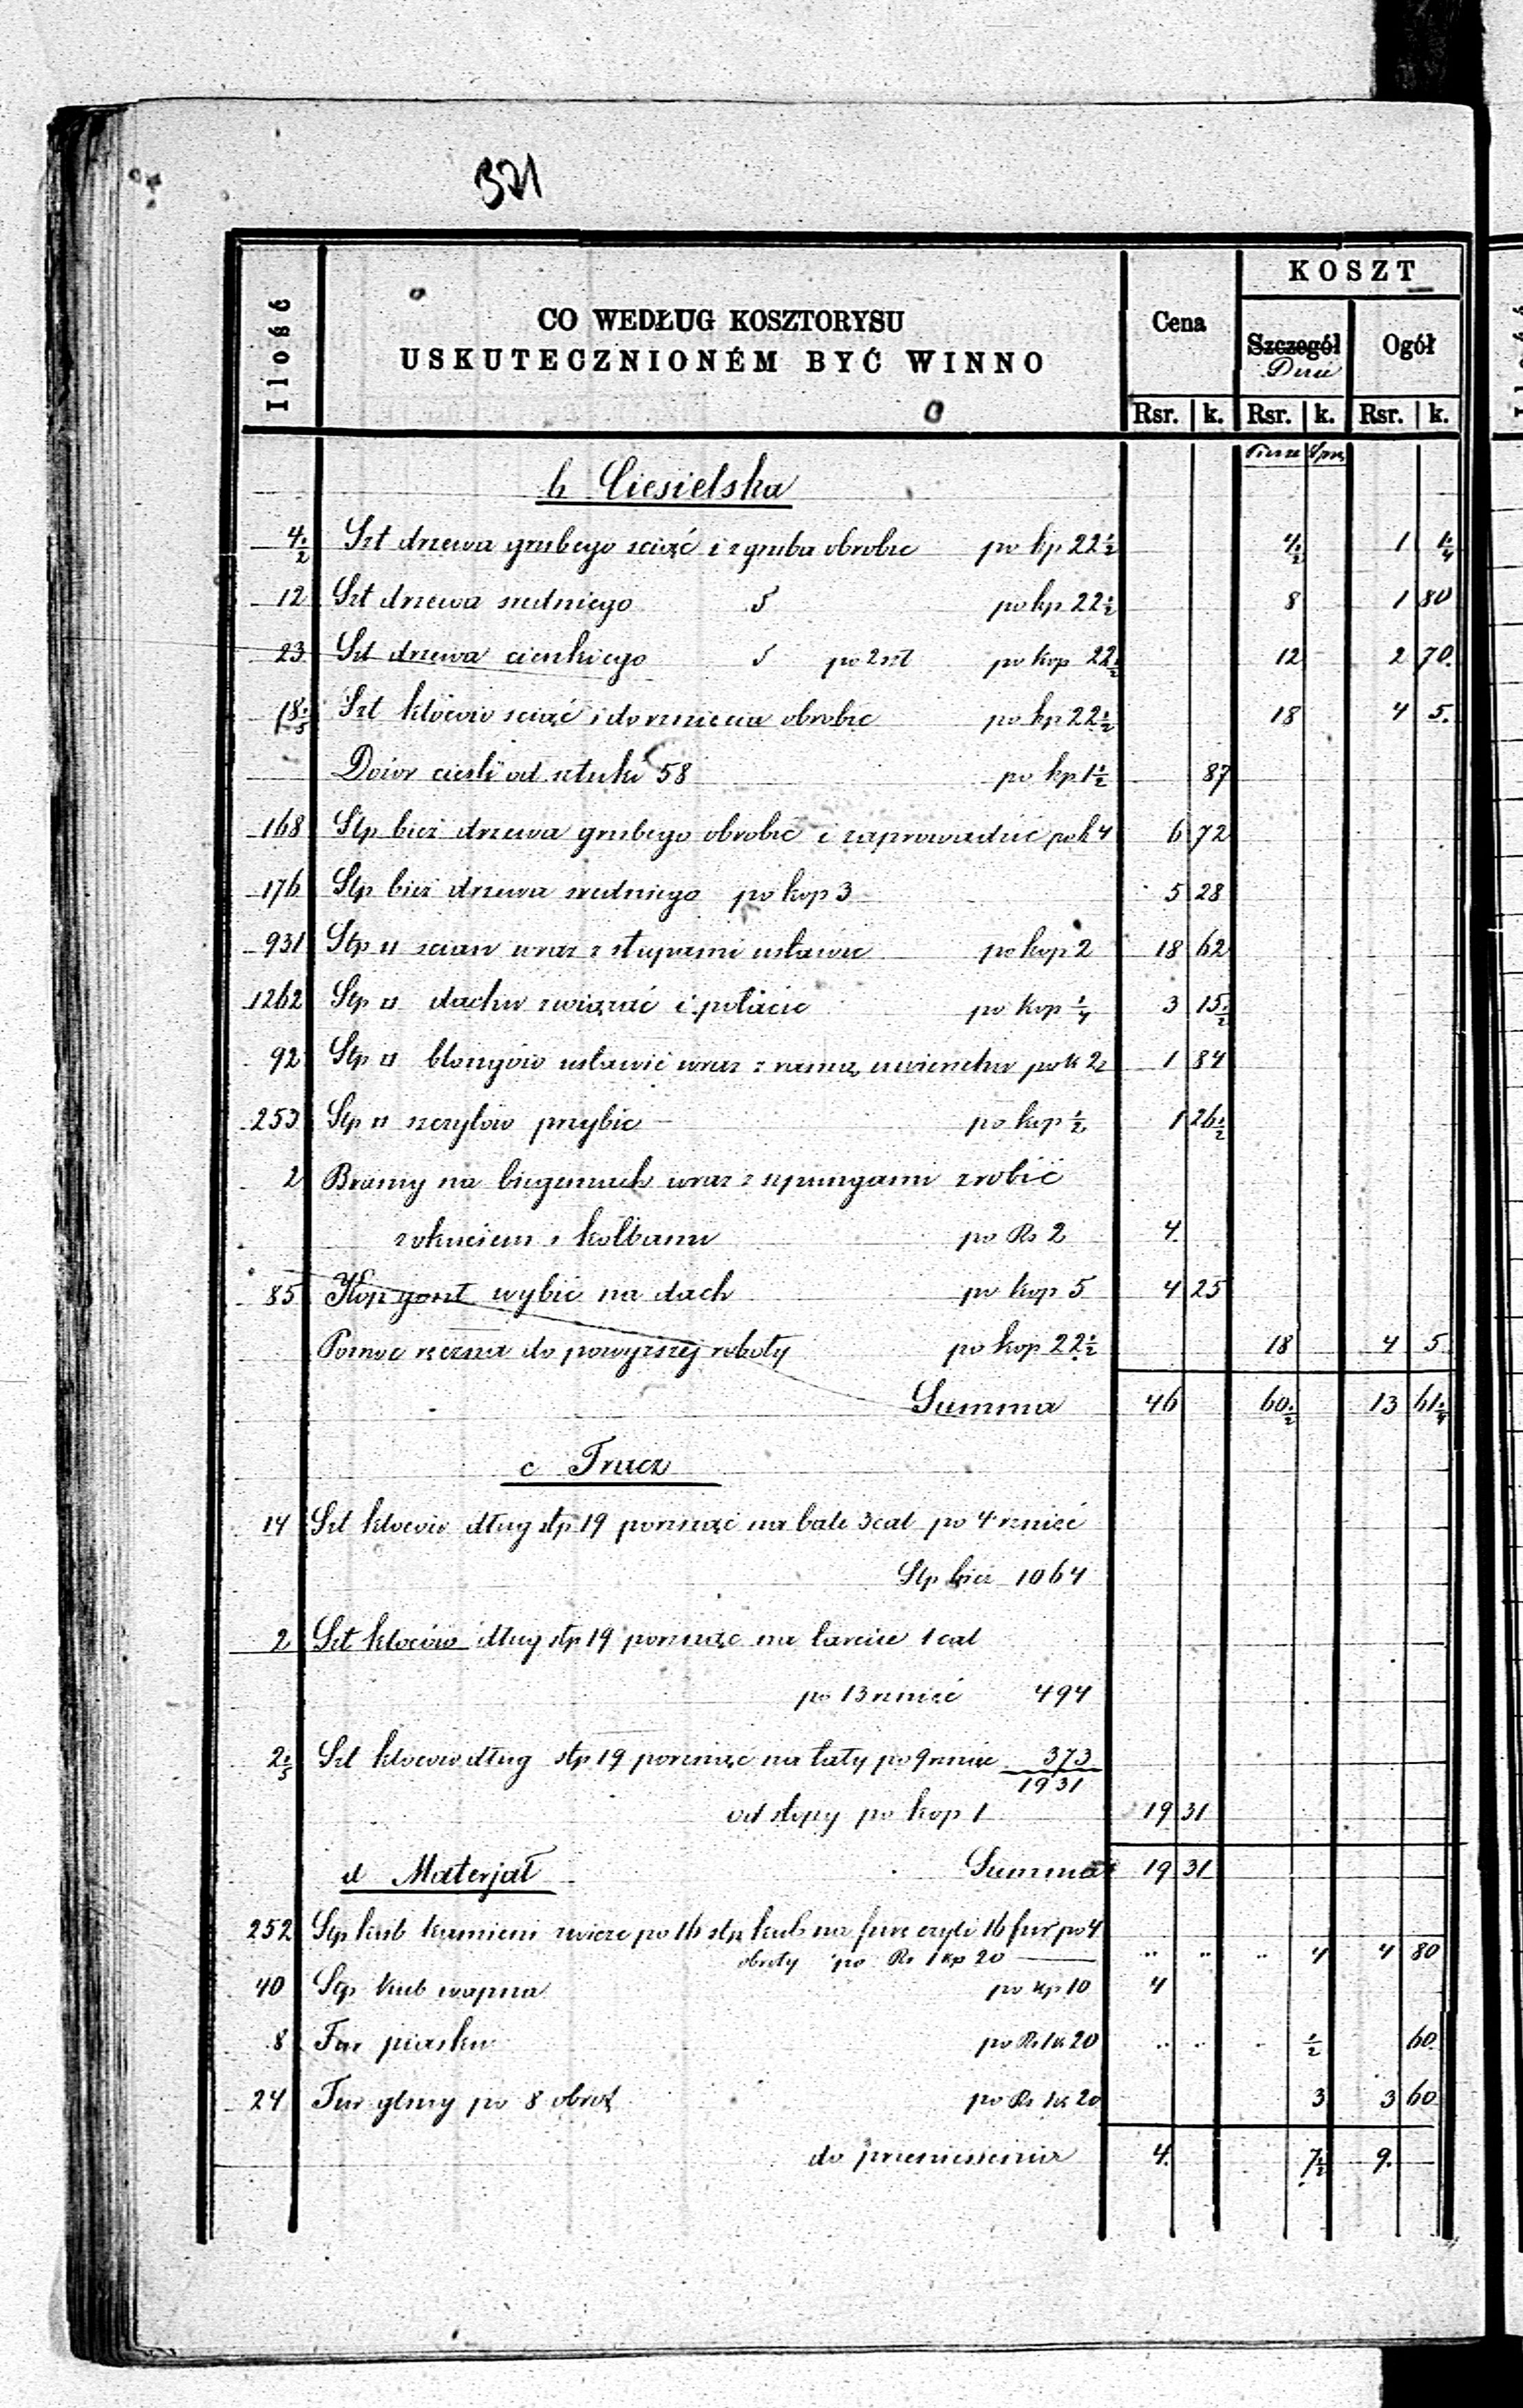 321
Ilość
CO WEDŁUG KOSZTORYSU
USKUTECZNIONÉM BYĆ WINNO
Cena
KOSZT
Szczegół
Dnie
Ogół
Rsr. k. Rsr. k. Rsr. k.
Piesze Sprz
b Ciesielska
4 1/2 Szt drzewa grubego sciąć i zgruba obrobic po kp 22 1/2 4 1/2 1 1 1/4
12 Szt drzewa sredniego po kp 22 1/2 8 1 80
23 Szt drzewa cienkiego po 2 szt po kop 22 1/2 12 2 70.
18 1/5 Szt kłocow sciąć i do rznięcia obrobic po kp 22 1/2 18 4 5.
Dozor cieśli od sztuki 58 po kp 1 1/2 87
168 Stp bież drzewa grubego obrobić i zaprowadzić po k 4 6 72
176 Stp bież drzewa sredniego po kop 3 5 28
931 Stp □ scian wraz z słupami ustawic po kop 2 18 62
1262 Stp □ dachu związać i połacic po kop 1/4 3 15 1/2
92 Stp □ ustawić wraz z po k 2 1 84
253 Stp □ szczytow przybic po kop 1/2 1 26 1/2
2 Bramy na biegunach wraz z szpungami zrobić
z okuciem i kolbami po Rs 2 4.
85 Kop gont wybic na dach po kop 5 4 25
Pomoc ręczna do powyzszej roboty po kop 22 1/2 18 4 5
Summa 46 60 1/2 13 61 1/4
c Tracz
14 Szt kłocow dług stp 19 porznąć na bale 3 cal po 4 rznięć
Stp bież 1064
2 Szt kłoców dług stp 19 porznąc na tarcice 1 cal
po 13 rznięć 494
2 1/5 Szt kłocow dług stp 19 porznąc na łaty po 9 rznięc 373
1931
od stopy po kop 1 19 31
Summa 19 31
d Materjał
252 Stp kub kamieni zwiezc po 16 stp kub na furę czyli 16 fur po 4
obroty po Rs 1 kp 20 .. .. .. 4 4 80
40 Stp kub wapna po kp 10 4
8 Fur piasku po Rs 1 k 20 .. .. .. 1/2 60.
24 Fur gliny po 8 obrot po Rs 1 k 20 3 3 60
do przeniesienia 4. 7 1/2 9.